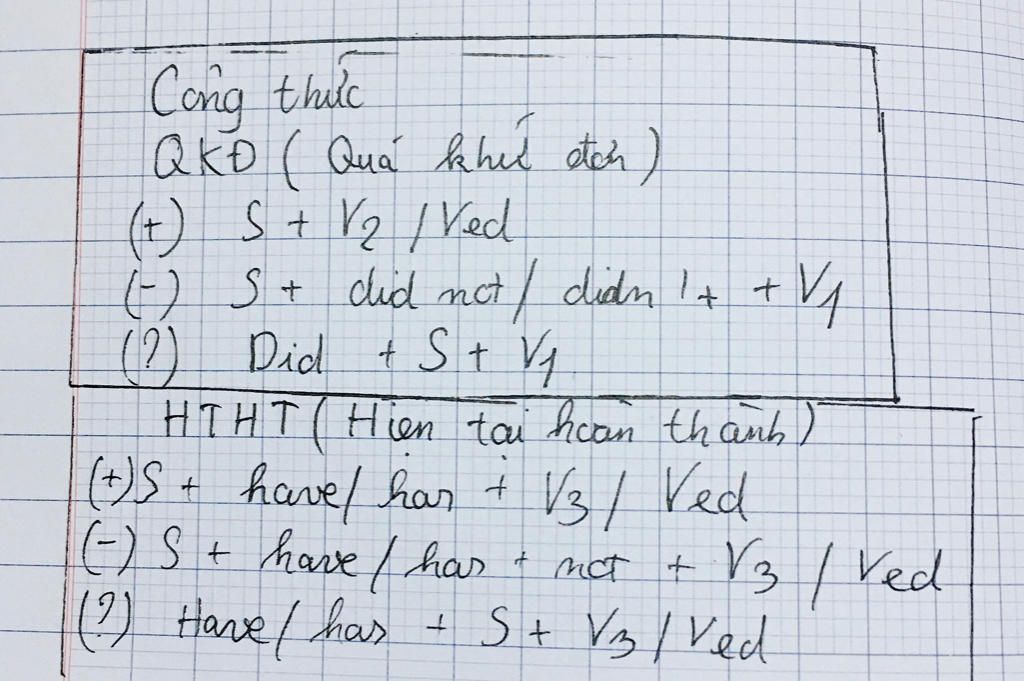 Công thức
QKĐ ( Quá khứ đơn )
(+) S + V2 / Ved
(-) S + did not / didn't + V1
(?) Did + S + V1
HTHT ( Hiện tại hoàn thành )
(+) S + have / has + V3 / Ved
(-) S + have / has + not + V3 / Ved
(?) Have / has + S + V3 / Ved